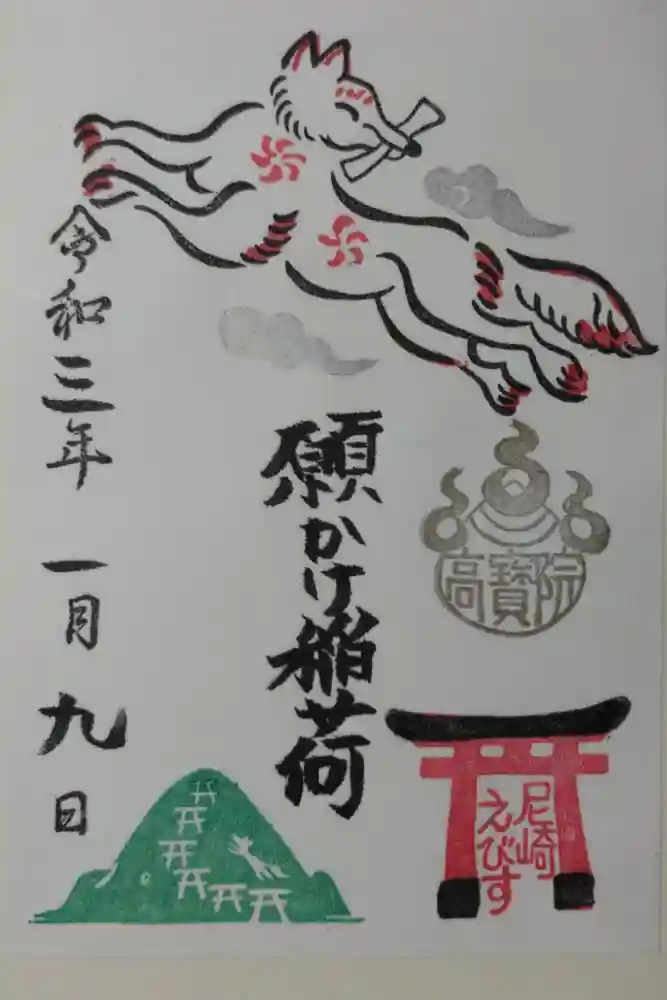 高寶院
尼崎
えびす
願かけ稲荷
令和三年 一月九日